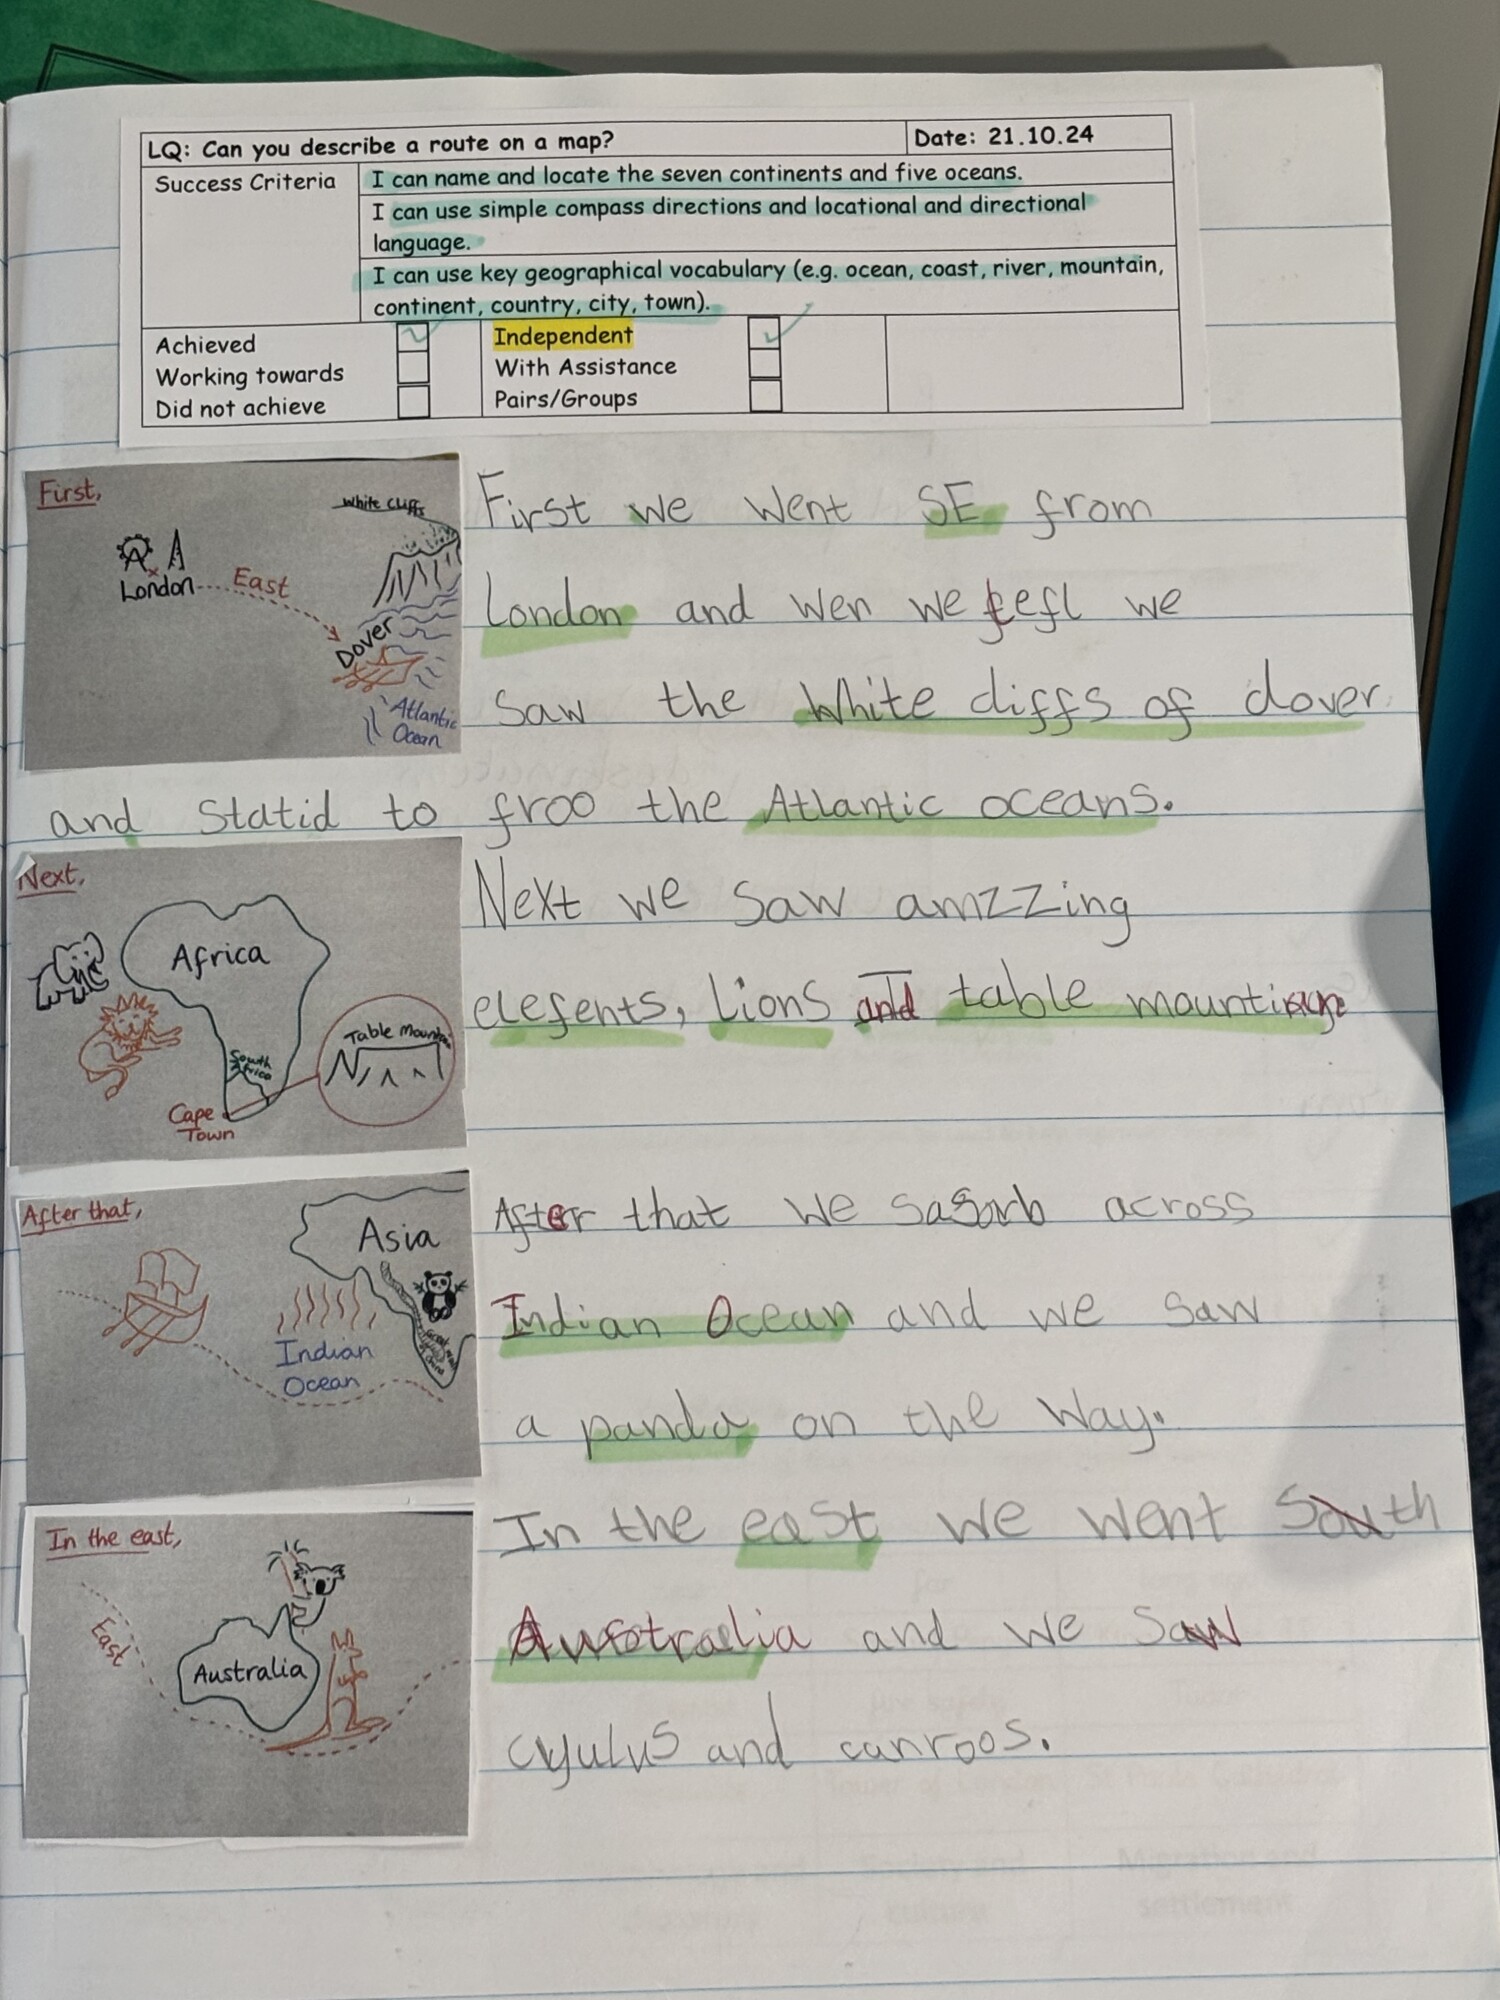 LQ: Can you describe a route on a map?
Date: 21.10.24
Success Criteria
I can name and locate the seven continents and five oceans.
I can use simple compass directions and locational and directional
language.
I can use key geographical vocabulary (e.g. ocean, coast, river, mountain,
continent, country, city, town).
Achieved
Working towards
Did not achieve
Independent
With Assistance
Pairs/Groups
First,
White Cliffs
London
East
Dover
Atlantic
Ocean
First we went SE from
London and wen we we
saw the White cliffs of dover
and Statid to froo the Atlantic oceans.
Next,
Africa
Table Mountain
South
Africa
Cape
Town
Next we saw amzzing
elefents, Lions and table
After that,
Asia
Indian
Ocean
After that we across
Indian Ocean and we saw
a panda on the way.
In the east,
East
Australia
In the east we went South
Australia and we saw
and canroos.